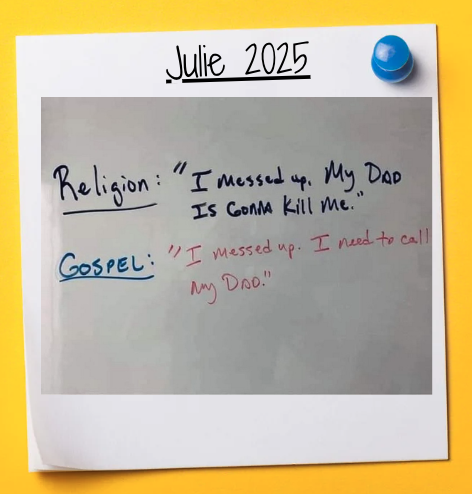 Julie 2025
Religion: "I messed up. My DAD
Is Gonna Kill Me."
GOSPEL: "I messed up. I need to call
my DAD."